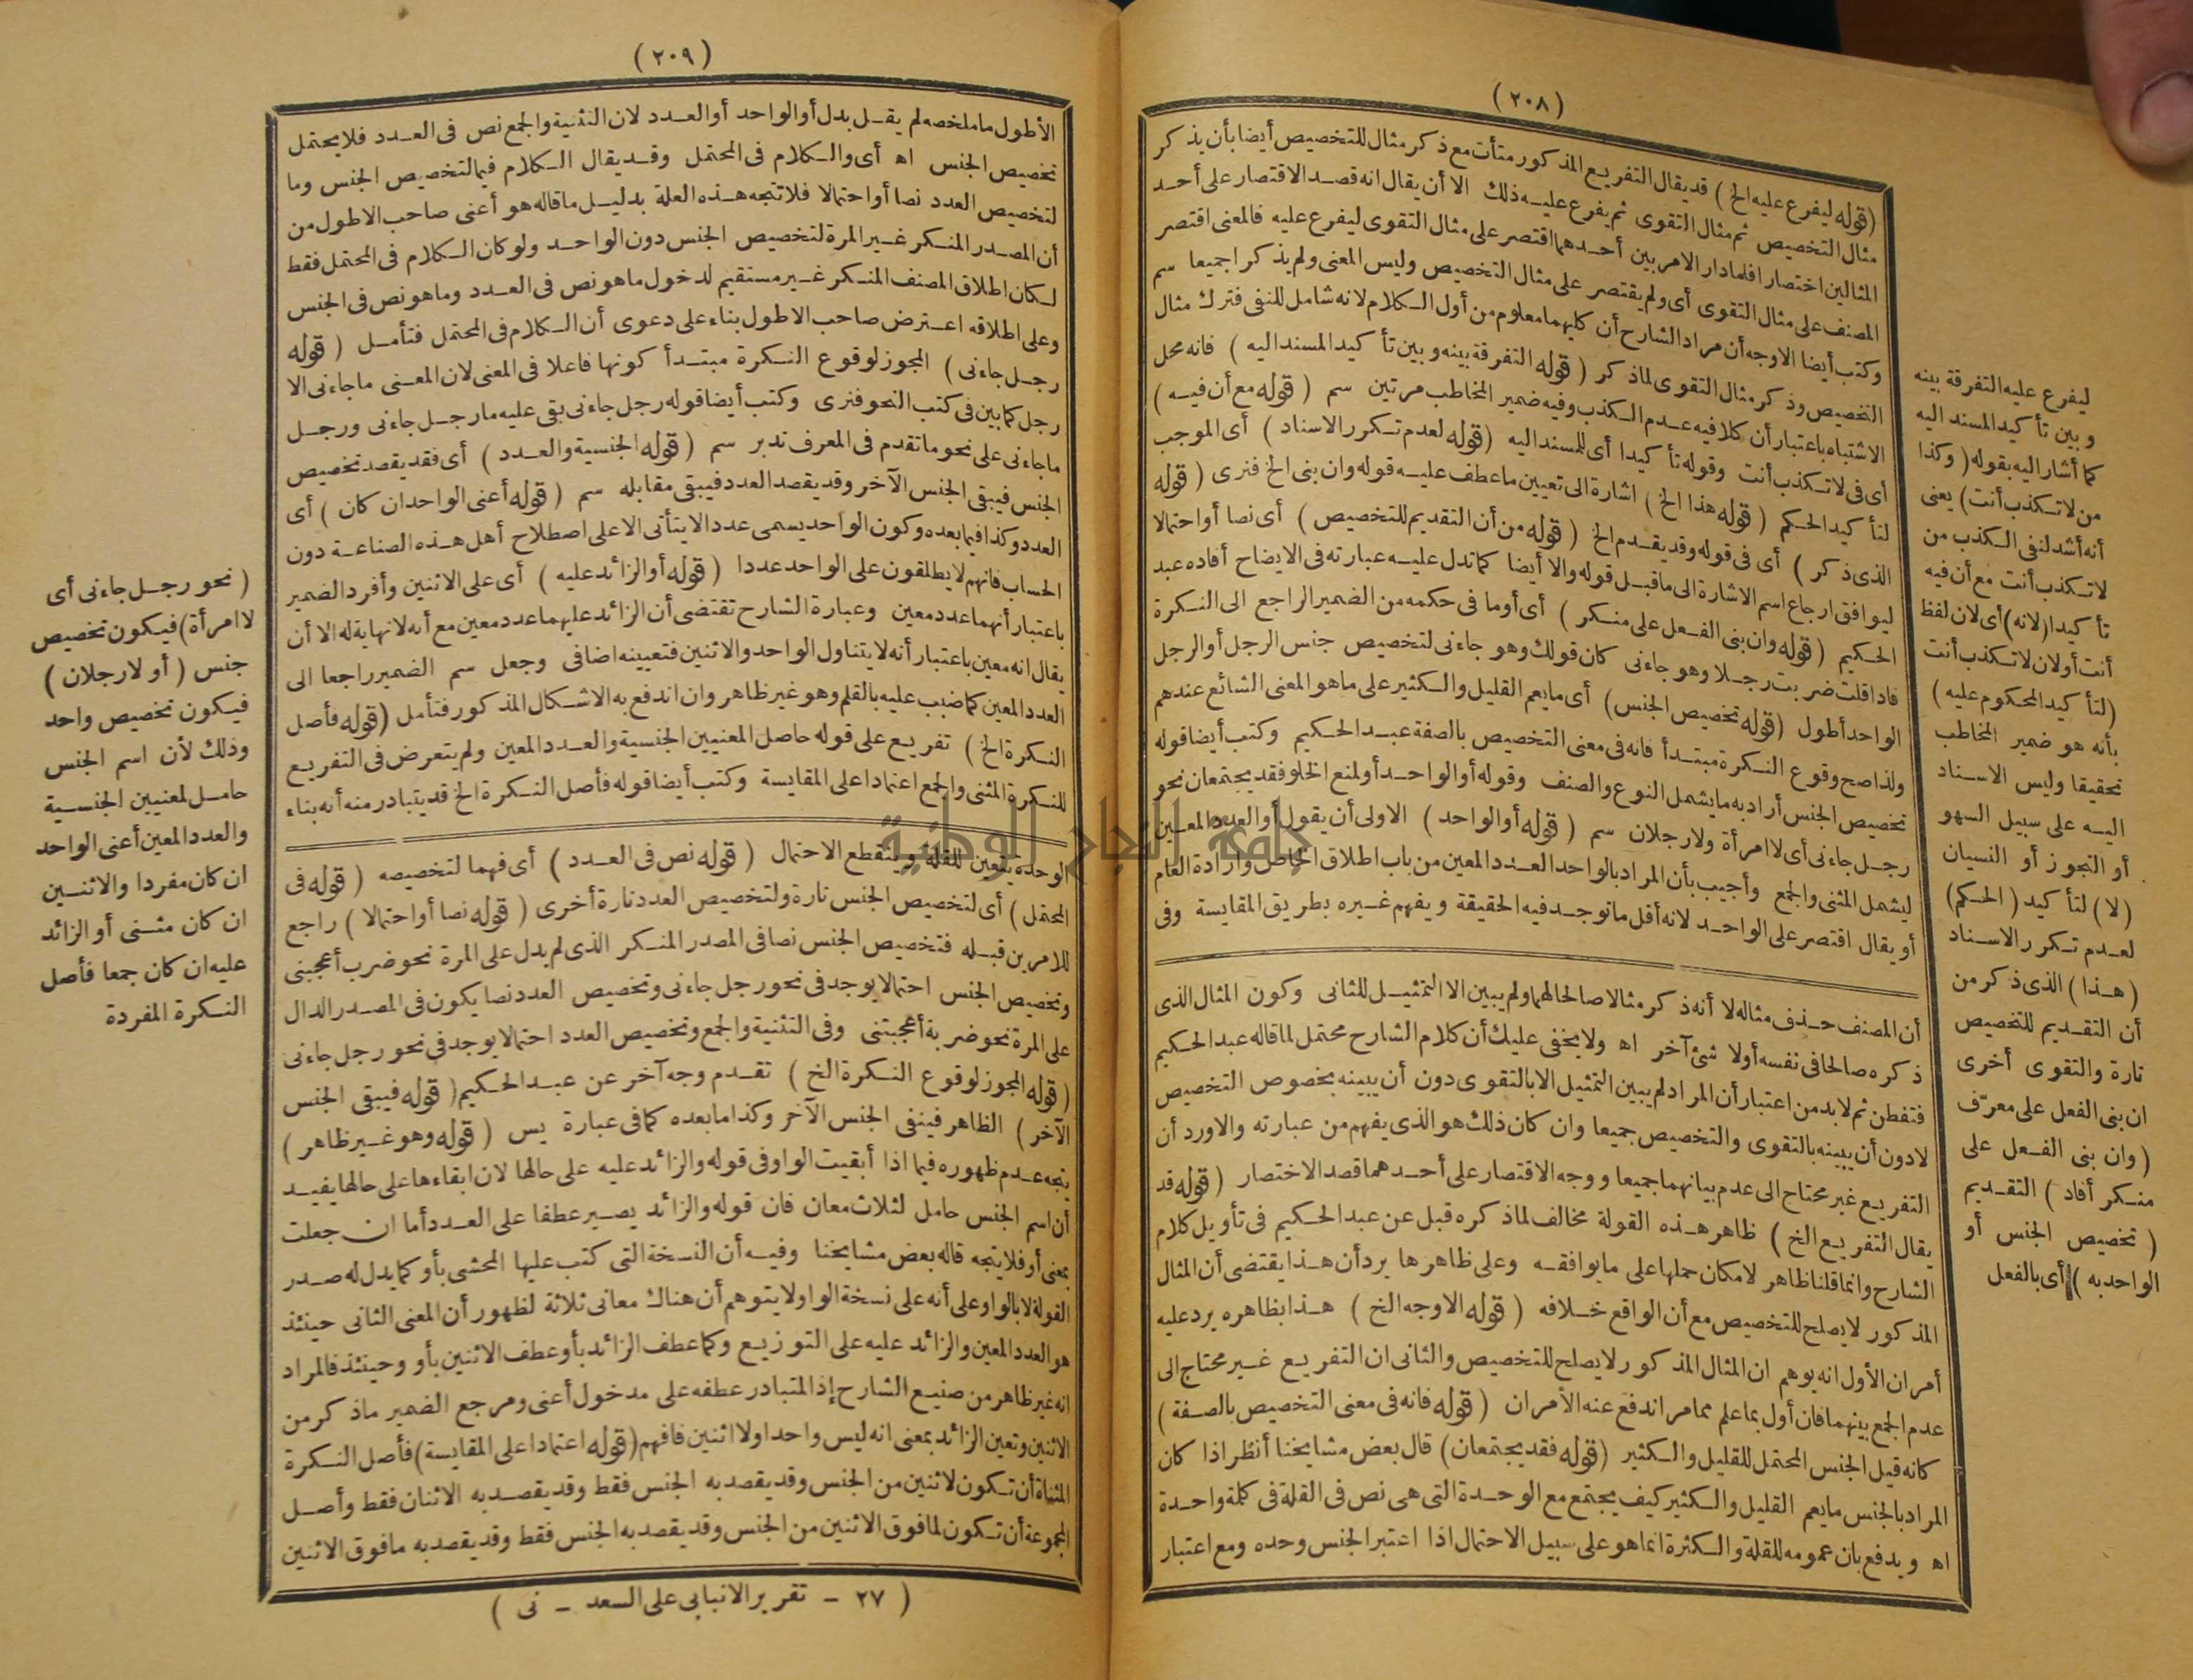 (٢٠٨)
(قوله ليفرع عليه الخ) قد يقال التفريع المذكور متأت مع ذكر مثال للتخصيص أيضا بأن يذكر
مثال التخصيص ثم مثال التقوى ثم يفرع عليه ذلك الا أن يقال انه قصد الاقتصار على أحد
المثالين اختصارا فلما دار الامر بين أحدهما اقتصر على مثال التقوى ليفرع عليه فالمعنى اقتصر
المصنف على مثال التقوى أى ولم يقتصر على مثال التخصيص وليس المعنى ولم يذكرا جميعا سم
وكتب أيضا الاوجه أن مراد الشارح أن كليهما معلوم من أول الكلام لانه شامل للنفى فترك مثال
التخصيص وذكر مثال التقوى لما ذكر (قوله التفرقة بينه وبين تأكيد المسند اليه) فانه محل
الاشتباه باعتبار أن كلا فيه عدم الكذب وفيه ضمير المخاطب مرتين سم (قوله مع أن فيه)
أى فى لا تكذب أنت وقوله تأكيدا أى للمسند اليه (قوله لعدم تكرر الاسناد) أى الموجب
لتأكيد الحكم (قوله هذا الخ) اشارة الى تعيين ما عطف عليه قوله وان بنى الخ فنرى (قوله
الذى ذكر) أى فى قوله وقد يقدم الخ (قوله من أن التقديم للتخصيص) أى نصا أو احتمالا
ليوافق ارجاع اسم الاشارة الى ما قبل قوله والا أيضا كما تدل عليه عبارته فى الايضاح أفاده عبد
الحكيم (قوله وان بنى الفعل على منكر) أى أو ما فى حكمه من الضمير الراجع الى النكرة
فاذا قلت ضربت رجلا وهو جاءنى كان قولك وهو جاءنى لتخصيص جنس الرجل أو الرجل
الواحد أطول (قوله تخصيص الجنس) أى ما يعم القليل والكثير على ما هو المعنى الشائع عندهم
ولذا صح وقوع النكرة مبتدأ فانه فى معنى التخصيص بالصفة عبد الحكيم وكتب أيضا قوله
تخصيص الجنس أراد به ما يشمل النوع والصنف وقوله أو الواحد أو لمنع الخلو فقد يجتمعان نحو
رجل جاءنى أى لا امرأة ولا رجلان سم (قوله أو الواحد) الاولى أن يقول أو العدد المعين
ليشمل المثنى والجمع وأجيب بأن المراد بالواحد العدد المعين من باب اطلاق الخاص وارادة العام
أو يقال اقتصر على الواحد لانه أقل ما توجد فيه الحقيقة ويفهم غيره بطريق المقايسة وفى
أن المصنف حذف مثاله لا أنه ذكر مثالا صالحا لهما ولم يبين الا التمثيل للثانى وكون المثال الذى
ذكره صالحا فى نفسه أولا شئ آخر اه ولا يخفى عليك أن كلام الشارح محتمل لما قاله عبد الحكيم
فتفطن ثم لا بد من اعتبار أن المراد لم يبين التمثيل الا بالتقوى دون أن يبينه بخصوص التخصيص
لا دون أن يبينه بالتقوى والتخصيص جميعا وان كان ذلك هو الذى يفهم من عبارته والا ورد أن
التفريع غير محتاج الى عدم بيانهما جميعا ووجه الاقتصار على أحدهما قصد الاختصار (قوله قد
يقال التفريع الخ) ظاهر هذه القولة مخالف لما ذكره قبل عن عبد الحكيم فى تأويل كلام
الشارح وانما قلنا ظاهر لامكان حملها على ما يوافقه وعلى ظاهرها يرد أن هذا يقتضى أن المثال
المذكور لا يصلح للتخصيص مع أن الواقع خلافه (قوله الاوجه الخ) هذا بظاهره يرد عليه
أمران الأول انه يوهم ان المثال المذكور لا يصلح للتخصيص والثانى ان التفريع غير محتاج الى
عدم الجمع بينهما فان أول بما علم مما مر اندفع عنه الأمران (قوله فانه فى معنى التخصيص بالصفة)
كانه قيل الجنس المحتمل للقليل والكثير (قوله فقد يجتمعان) قال بعض مشايخنا أنظر اذا كان
المراد بالجنس ما يعم القليل والكثير كيف يجتمع مع الوحدة التى هى نص فى القلة فى كلمة واحدة
اه ويدفع بان عمومه للقلة والكثرة انما هو على سبيل الاحتمال اذا اعتبر الجنس وحده ومع اعتبار
ليفرع عليه التفرقة بينه
وبين تأكيد المسند اليه
كما أشار اليه بقوله (وكذا
من لا تكذب أنت) يعنى
أنه أشد لنفى الكذب من
لا تكذب أنت مع أن فيه
تأكيدا (لانه) أى لان لفظ
أنت أو لان لا تكذب أنت
(لتأكيد المحكوم عليه)
بأنه هو ضمير المخاطب
تحقيقا وليس الاسناد
اليه على سبيل السهو
أو التجوز أو النسيان
(لا) لتأكيد (الحكم)
لعدم تكرر الاسناد
(هذا) الذى ذكر من
أن التقديم للتخصيص
تارة والتقوى أخرى
ان بنى الفعل على معرّف
(وان بنى الفعل على
منكر أفاد) التقديم
(تخصيص الجنس أو
الواحد به) أى بالفعل
(٢٠٩)
الأطول ما ملخصه لم يقل بدل أو الواحد أو العدد لان التثنية والجمع نص فى العدد فلا يحتمل
تخصيص الجنس اه أى والكلام فى المحتمل وقد يقال الكلام فيما لتخصيص الجنس وما
لتخصيص العدد نصا أو احتمالا فلا تتجه هذه العلة بدليل ما قاله هو أعنى صاحب الاطول من
أن المصدر المنكر غير المرة لتخصيص الجنس دون الواحد ولو كان الكلام فى المحتمل فقط
لكان اطلاق المصنف المنكر غير مستقيم لدخول ما هو نص فى العدد وما هو نص فى الجنس
وعلى اطلاقه اعترض صاحب الاطول بناء على دعوى أن الكلام فى المحتمل فتأمل (قوله
رجل جاءنى) المجوز لوقوع النكرة مبتدأ كونها فاعلا فى المعنى لان المعنى ما جاءنى الا
رجل كما بين فى كتب النحو فنرى وكتب أيضا قوله رجل جاءنى بقى عليه ما رجل جاءنى ورجل
ما جاءنى على نحو ما تقدم فى المعرف تدبر سم (قوله الجنسية والعدد) أى فقد يقصد تخصيص
الجنس فيبقى الجنس الآخر وقد يقصد العدد فيبقى مقابله سم (قوله أعنى الواحد ان كان) أى
العدد وكذا فيما بعده وكون الواحد يسمى عددا لا يتأتى الا على اصطلاح أهل هذه الصناعة دون
الحساب فانهم لا يطلقون على الواحد عددا (قوله أو الزائد عليه) أى على الاثنين وأفرد الضمير
باعتبار أنهما عدد معين وعبارة الشارح تقتضى أن الزائد عليهما عدد معين مع أنه لا نهاية له الا أن
يقال انه معين باعتبار أنه لا يتناول الواحد والاثنين فتعيينه اضافى وجعل سم الضمير راجعا الى
العدد المعين كما ضبب عليه بالقلم وهو غير ظاهر وان اندفع به الاشكال المذكور فتأمل (قوله فأصل
النكرة الخ) تفريع على قوله حاصل المعنيين الجنسية والعدد المعين ولم يتعرض فى التفريع
للنكرة المثنى والجمع اعتمادا على المقايسة وكتب أيضا قوله فأصل النكرة الخ قد يتبادر منه أنه بناء
الوحدة يتعين للقلة وينقطع الاحتمال (قوله نص فى العدد) أى فهما لتخصيصه (قوله فى
المحتمل) أى لتخصيص الجنس تارة ولتخصيص العدد تارة أخرى (قوله نصا أو احتمالا) راجع
للامرين قبله فتخصيص الجنس نصا فى المصدر المنكر الذى لم يدل على المرة نحو ضرب أعجبنى
وتخصيص الجنس احتمالا يوجد فى نحو رجل جاءنى وتخصيص العدد نصا يكون فى المصدر الدال
على المرة نحو ضربة أعجبتنى وفى التثنية والجمع وتخصيص العدد احتمالا يوجد فى نحو رجل جاءنى
(قوله المجوز لوقوع النكرة الخ) تقدم وجه آخر عن عبد الحكيم (قوله فيبقى الجنس
الآخر) الظاهر فينفى الجنس الآخر وكذا ما بعده كما فى عبارة يس (قوله وهو غير ظاهر)
يتجه عدم ظهوره فيما اذا أبقيت الواو فى قوله والزائد عليه على حالها لان ابقاءها على حالها يفيد
أن اسم الجنس حامل لثلاث معان فان قوله والزائد يصير عطفا على العدد أما ان جعلت
بمعنى أو فلا يتجه قاله بعض مشايخنا وفيه أن النسخة التى كتب عليها المحشى بأو كما يدل له صدر
القولة لا بالواو على أنه على نسخة الواو لا يتوهم أن هناك معانى ثلاثة لظهور أن المعنى الثانى حينئذ
هو العدد المعين والزائد عليه على التوزيع وكما عطف الزائد بأو عطف الاثنين بأو وحينئذ فالمراد
انه غير ظاهر من صنيع الشارح إذ المتبادر عطفه على مدخول أعنى ومرجع الضمير ما ذكر من
الاثنين وتعين الزائد بمعنى انه ليس واحدا ولا اثنين فافهم (قوله اعتمادا على المقايسة) فأصل النكرة
المثناة أن تكون لاثنين من الجنس وقد يقصد به الجنس فقط وقد يقصد به الاثنان فقط وأصل
المجموعة أن تكون لما فوق الاثنين من الجنس وقد يقصد به الجنس فقط وقد يقصد به ما فوق الاثنين
(نحو رجل جاءنى أى
لا امرأة) فيكون تخصيص
جنس (أو لا رجلان)
فيكون تخصيص واحد
وذلك لأن اسم الجنس
حامل لمعنيين الجنسية
والعدد المعين أعنى الواحد
ان كان مفردا والاثنين
ان كان مثنى أو الزائد
عليه ان كان جمعا فأصل
النكرة المفردة
(٢٧ - تقرير الانبابى على السعد - نى)
جامعة النجاح الوطنية